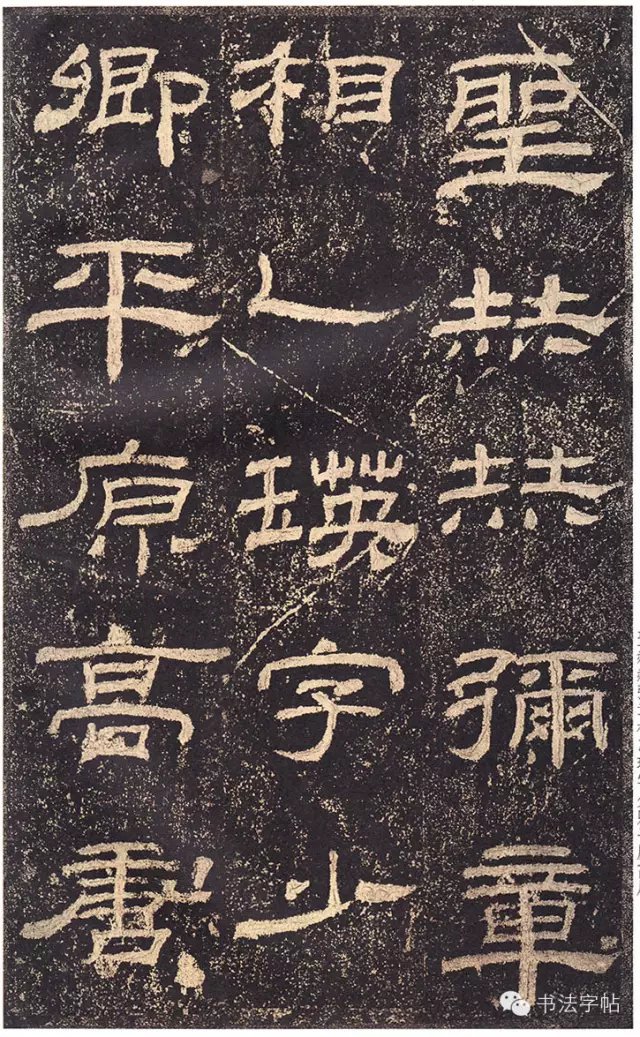 聖赫赫彌章
相乙瑛字少
卿平原高唐
书法字帖